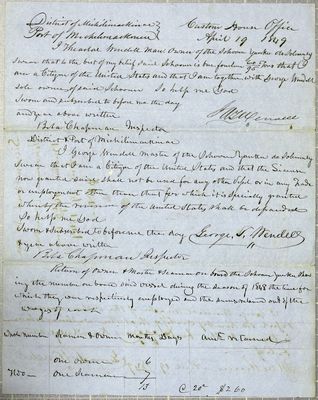 District of Michilimackinac
Port of Michilimackinac
Custom House Office
April 19 1849
I Theadar Wendell Man Owner of the Schoon Yankee do Solemnly
Swear that to the best of my belief Said Schooner is tons that I
am a Citizen of the United States and that I am together with George Wendell
Sole owner of said Schooner So help me God
Sworn and subscribed to before me the day
and year above written
Wendell
Bela Chapman Inspector
District & Port of Michilimackinac
I George Wendell Master of the Schooner Yankee do Solemnly
Swear that I am a Citizen of the United States and that the License
now granted shall not be used for any other Vessel or in any trade
or employment other than that for which it is specially granted
whereby the revenue of the United States shall be defrauded
So help me God
Sworn & subscribed to before me the day George S. Wendell
& year above written
Bela Chapman Inspector
Return of Owner & Master & Seaman on board the Schooner Yankee Shew
ing the number on board said vessel during the season of 1848 the time for
which they were respectively employed and the sum retained out of the
wages of each
Whole Number Seamen & Owner Months Days Amt retained
one owner 6
Two — one Seaman 7
13
@ 20¢ $2.60